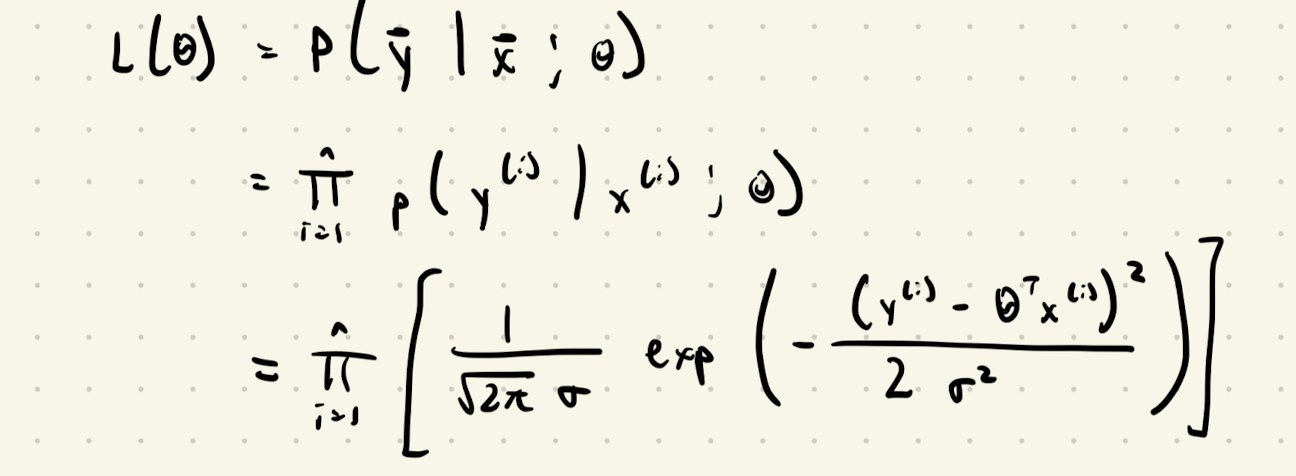 L(θ) = P(ȳ | x̄ ; θ)
= ∏_{i=1}^{n} p(y^{(i)} | x^{(i)} ; θ)
= ∏_{i=1}^{n} [ \frac{1}{\sqrt{2π} σ} exp ( - \frac{(y^{(i)} - θ^T x^{(i)})^2}{2 σ^2} ) ]